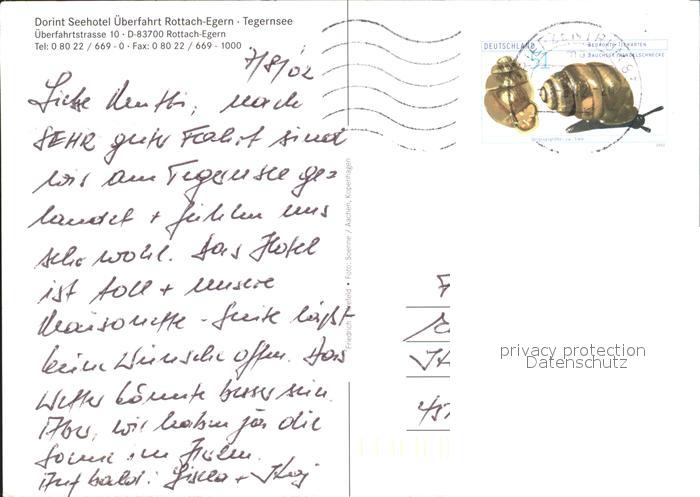 Dorint Seehotel Überfahrt Rottach-Egern · Tegernsee
Überfahrtstrasse 10 · D-83700 Rottach-Egern
Tel: 0 80 22 / 669 - 0 · Fax: 0 80 22 / 669 - 1000
7/8/02
Liebe Mutti, nach
SEHR guter Fahrt sind
wir am Tegernsee ge=
landet + fühlen uns
sehr wohl. Das Hotel
ist toll + unsere
Maisonette - Suite läßt
keine Wünsche offen. Das
Wetter könnte besser sein.
Aber, wir haben ja die
Sonne im Herzen.
Auf bald:
DEUTSCHLAND
BEDROHTE TIERARTEN
BAUCHIGE WINDELSCHNECKE
51
2002
Foto: Soerne / Aachen, Kopenhagen
Friedrich
privacy protection
Datenschutz